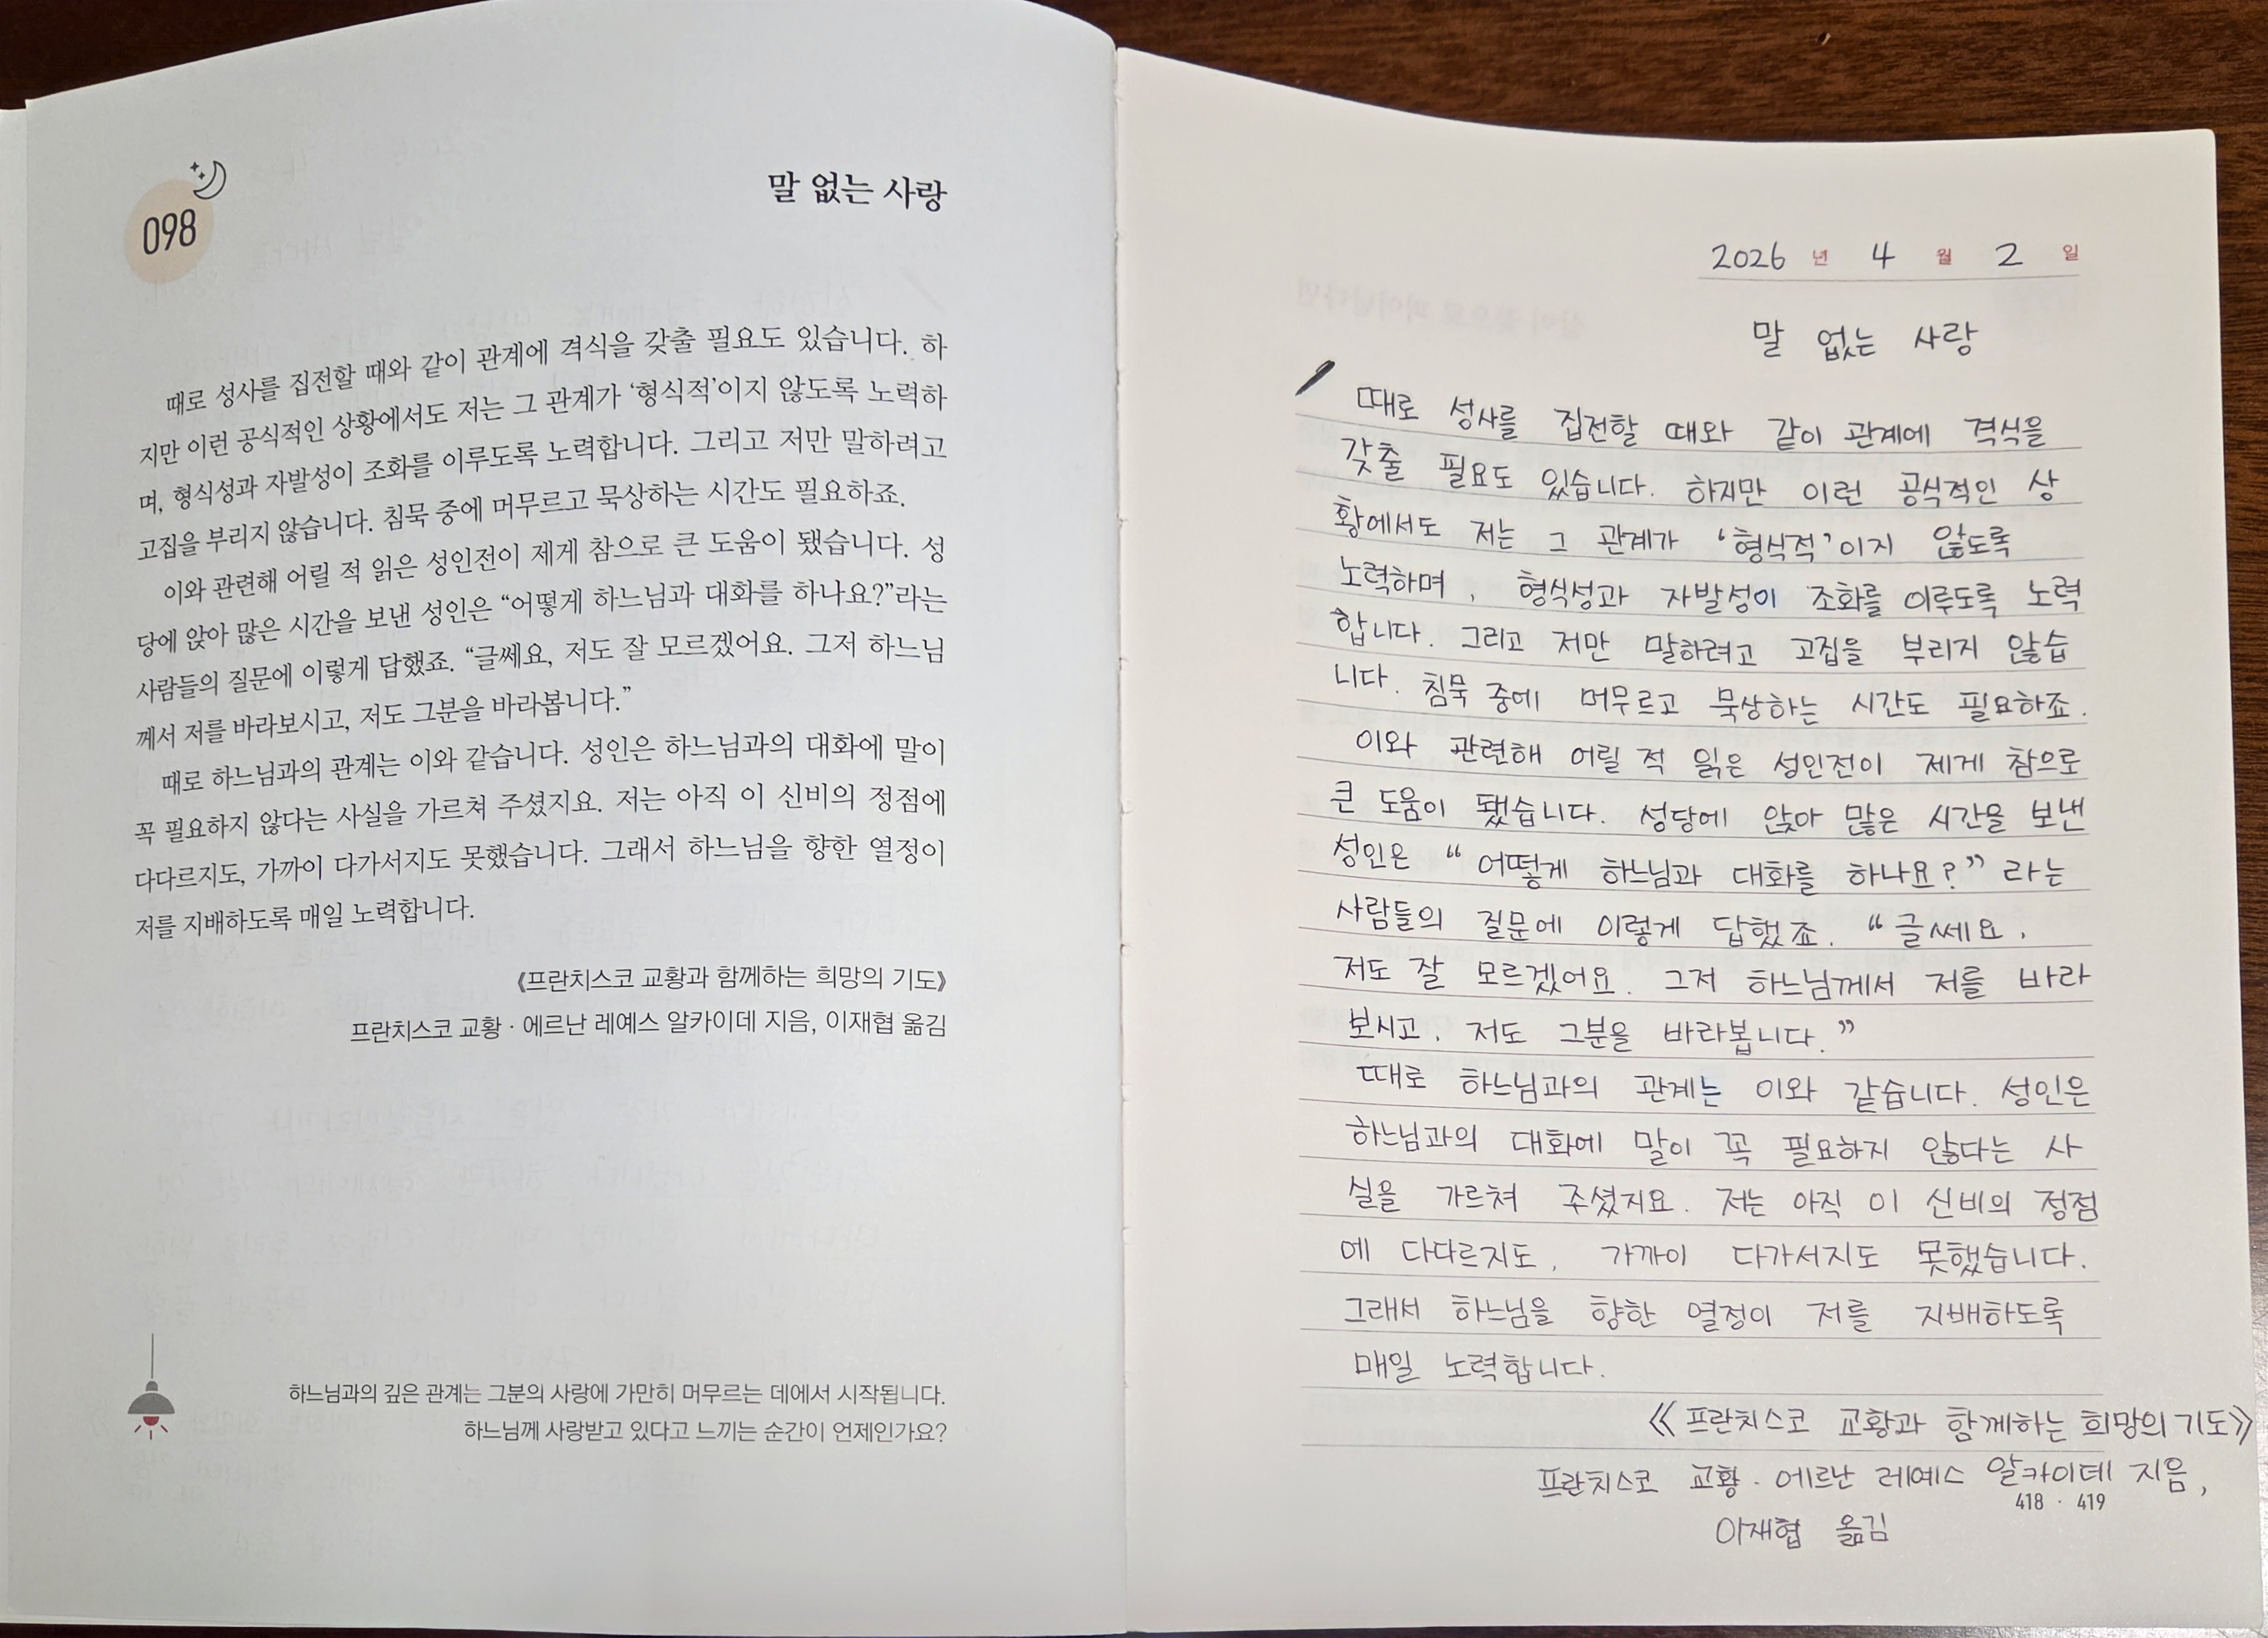 098
말 없는 사랑
때로 성사를 집전할 때와 같이 관계에 격식을 갖출 필요도 있습니다. 하
지만 이런 공식적인 상황에서도 저는 그 관계가 ‘형식적’이지 않도록 노력하
며, 형식성과 자발성이 조화를 이루도록 노력합니다. 그리고 저만 말하려고
고집을 부리지 않습니다. 침묵 중에 머무르고 묵상하는 시간도 필요하죠.
이와 관련해 어릴 적 읽은 성인전이 제게 참으로 큰 도움이 됐습니다. 성
당에 앉아 많은 시간을 보낸 성인은 “어떻게 하느님과 대화를 하나요?”라는
사람들의 질문에 이렇게 답했죠. “글쎄요, 저도 잘 모르겠어요. 그저 하느님
께서 저를 바라보시고, 저도 그분을 바라봅니다.”
때로 하느님과의 관계는 이와 같습니다. 성인은 하느님과의 대화에 말이
꼭 필요하지 않다는 사실을 가르쳐 주셨지요. 저는 아직 이 신비의 정점에
다다르지도, 가까이 다가서지도 못했습니다. 그래서 하느님을 향한 열정이
저를 지배하도록 매일 노력합니다.
《프란치스코 교황과 함께하는 희망의 기도》
프란치스코 교황 · 에르난 레예스 알카이데 지음, 이재협 옮김
하느님과의 깊은 관계는 그분의 사랑에 가만히 머무르는 데에서 시작됩니다.
하느님께 사랑받고 있다고 느끼는 순간이 언제인가요?
2026 년 4 월 2 일
말 없는 사랑
때로 성사를 집전할 때와 같이 관계에 격식을
갖출 필요도 있습니다. 하지만 이런 공식적인 상
황에서도 저는 그 관계가 ‘형식적’이지 않도록
노력하며, 형식성과 자발성이 조화를 이루도록 노력
합니다. 그리고 저만 말하려고 고집을 부리지 않습
니다. 침묵 중에 머무르고 묵상하는 시간도 필요하죠.
이와 관련해 어릴 적 읽은 성인전이 제게 참으로
큰 도움이 됐습니다. 성당에 앉아 많은 시간을 보낸
성인은 “어떻게 하느님과 대화를 하나요?”라는
사람들의 질문에 이렇게 답했죠. “글쎄요,
저도 잘 모르겠어요. 그저 하느님께서 저를 바라
보시고, 저도 그분을 바라봅니다.”
때로 하느님과의 관계는 이와 같습니다. 성인은
하느님과의 대화에 말이 꼭 필요하지 않다는 사
실을 가르쳐 주셨지요. 저는 아직 이 신비의 정점
에 다다르지도, 가까이 다가서지도 못했습니다.
그래서 하느님을 향한 열정이 저를 지배하도록
매일 노력합니다.
《프란치스코 교황과 함께하는 희망의 기도》
프란치스코 교황 · 에르난 레예스 알카이데 지음,
418 · 419
이재협 옮김